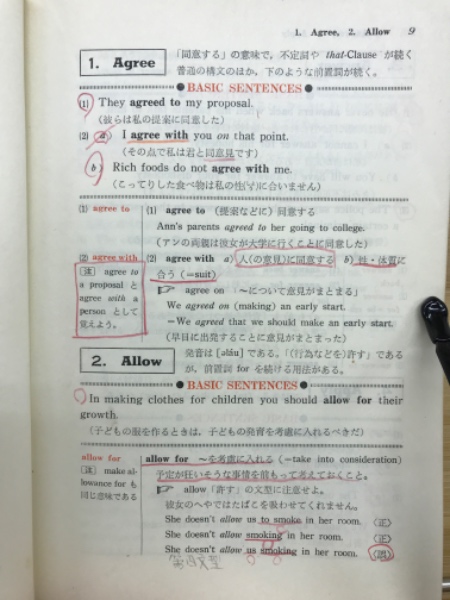 1. Agree, 2. Allow 9
1. Agree
「同意する」の意味で，不定詞や that-Clause が続く
普通の構文のほか，下のような前置詞が続く。
BASIC SENTENCES
(1) They agreed to my proposal.
(彼らは私の提案に同意した)
(2) a) I agree with you on that point.
(その点で私は君と同意見です)
b) Rich foods do not agree with me.
(こってりした食べ物は私の性(しょう)に合いません)
(1) agree to
(1) agree to （提案などに）同意する
Ann's parents agreed to her going to college.
(アンの両親は彼女が大学に行くことに同意した)
(2) agree with
(2) agree with a) 人(の意見)に同意する b) 性・体質に
合う (=suit)
[注] agree to
a proposal と
agree with a
person として
覚えよう。
☞ agree on 「～について意見がまとまる」
We agreed on (making) an early start.
=We agreed that we should make an early start.
(早目に出発することに意見がまとまった)
2. Allow
発音は [əláu] である。「(行為などを)許す」である
が，前置詞 for を続ける用法がある。
BASIC SENTENCES
In making clothes for children you should allow for their
growth.
(子どもの服を作るときは，子どもの発育を考慮に入れるべきだ)
allow for
allow for ～を考慮に入れる (=take into consideration)
[注] make al-
lowance for も
同じ意味である
予定が狂いそうな事情を前もって考えておくこと。
☞ allow「許す」の文型に注意せよ。
彼女のへやではたばこを吸わせてくれません。
She doesn't allow us to smoke in her room. (正)
She doesn't allow smoking in her room. (正)
She doesn't allow us smoking in her room. (誤)